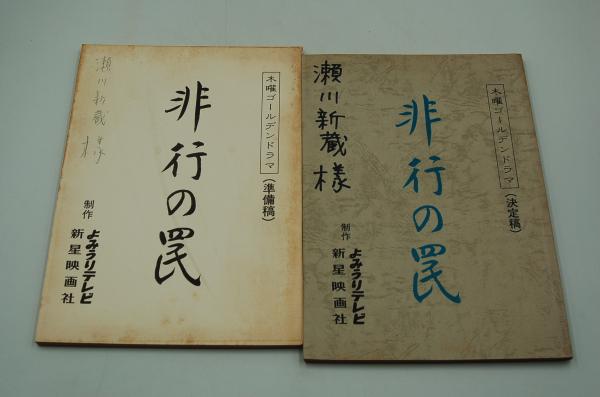 木曜ゴールデンドラマ
（準備稿）
非行の罠
制作
よみうりテレビ
新星映画社
瀬川新蔵様
木曜ゴールデンドラマ
（決定稿）
非行の罠
制作
よみうりテレビ
新星映画社
瀬川新蔵様